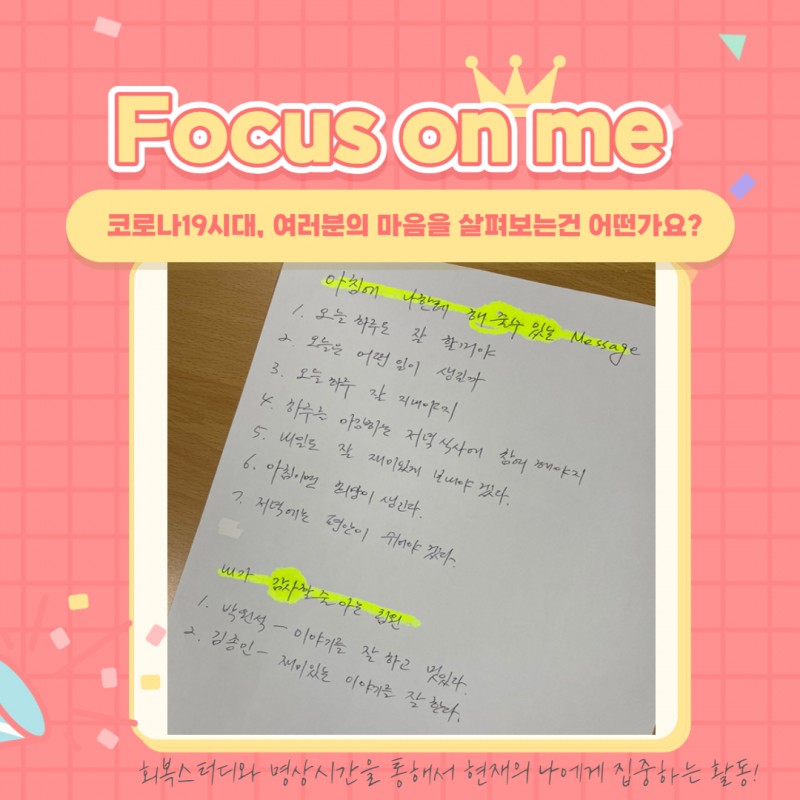 Focus on me
코로나19시대, 여러분의 마음을 살펴보는건 어떤가요?
아침에 나한테 해 줄수 있는 Message
1. 오늘 하루도 잘 할거야
2. 오늘은 어떤 일이 생길까
3. 오늘하루 잘 지내야지
4. 하루를 마감하는 저녁식사에 참여 해야지
5. 내일도 잘 재미있게 보내야 겠다.
6. 아침이면 희망이 생긴다.
7. 저녁에는 편안히 쉬어야 겠다.
내가 감사할 수 있는
1. 박원석 - 이야기를 잘 하고 멋있다.
2. 김종민 - 재미있는 이야기를 잘 한다.
회복스터디와 명상시간을 통해서 현재의 나에게 집중하는 활동!